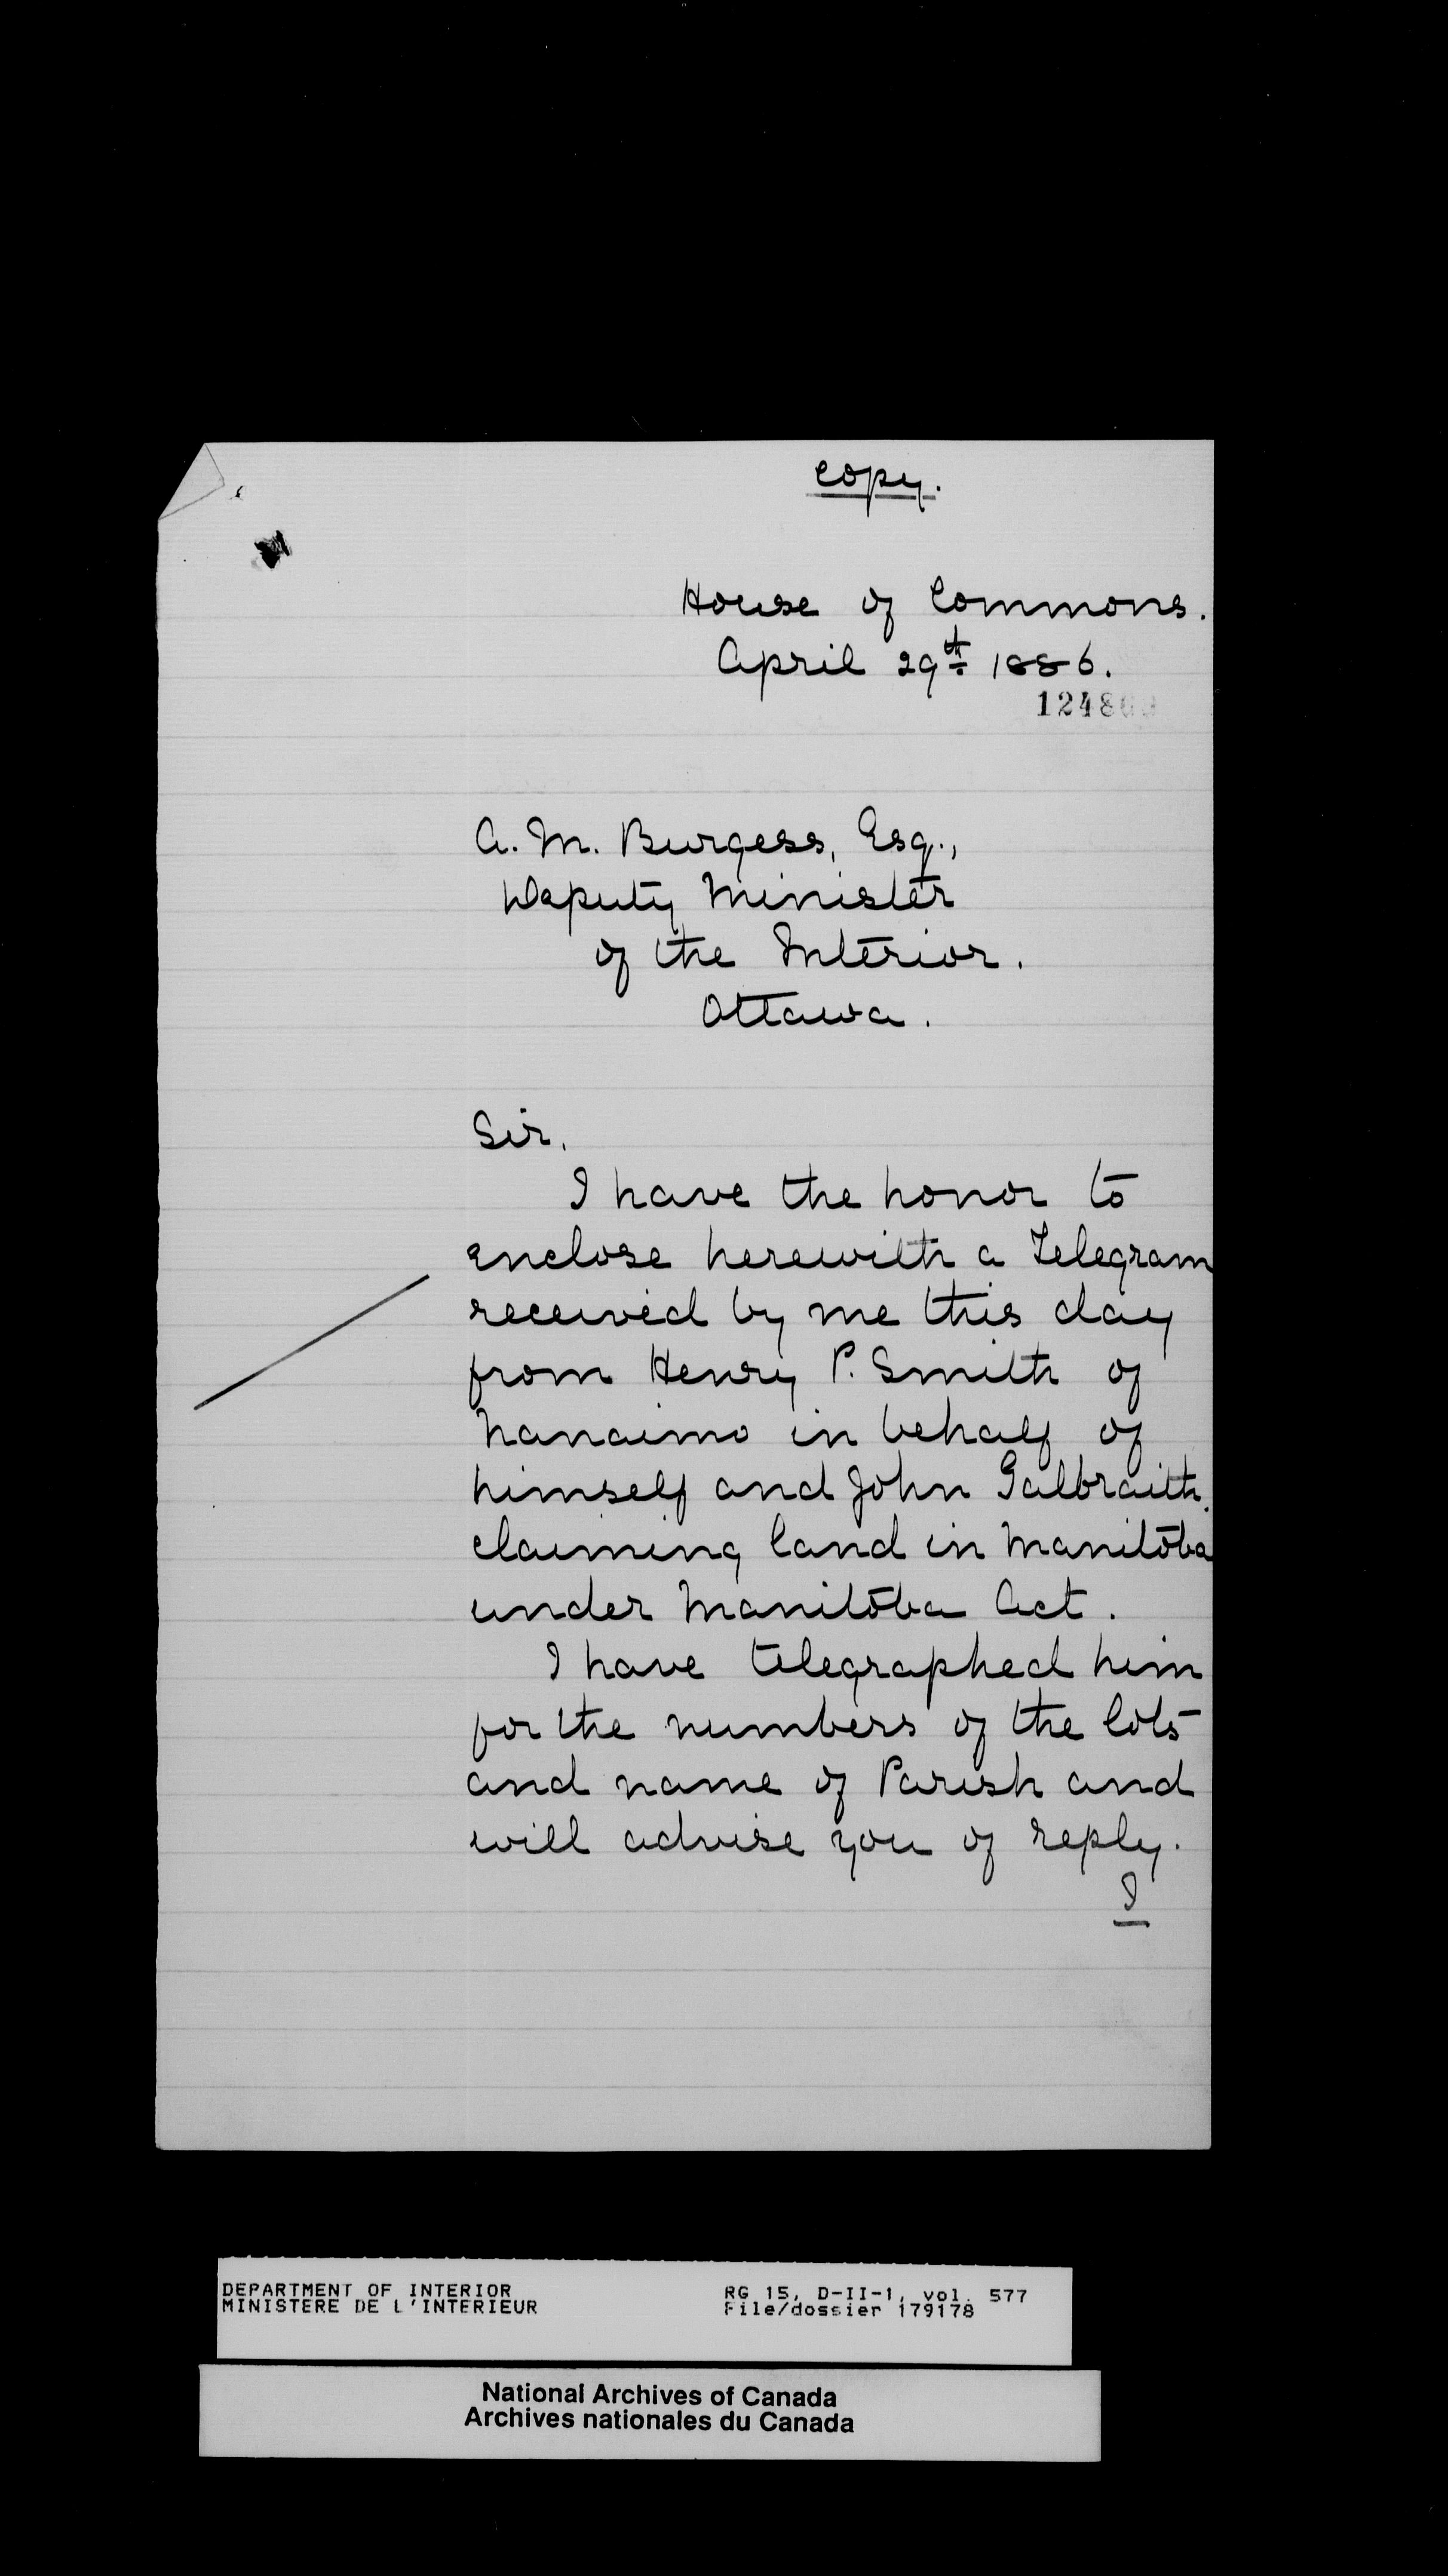 Copy.
House of Commons.
April 29th 1886.
A. M. Burgess, Esq.,
Deputy Minister
of the Interior.
Ottawa.
Sir,
I have the honor to
enclose herewith a Telegram
received by me this day
from Henry P. Smith of
Nanaimo in behalf of
himself and John Galbraith.
claiming land in Manitoba
under Manitoba Act.
I have telegraphed him
for the numbers of the lots
and name of Parish and
will advise you of reply.
I
DEPARTMENT OF INTERIOR
MINISTERE DE L'INTERIEUR
RG 15, D-II-1, vol. 577
File/dossier 179178
National Archives of Canada
Archives nationales du Canada